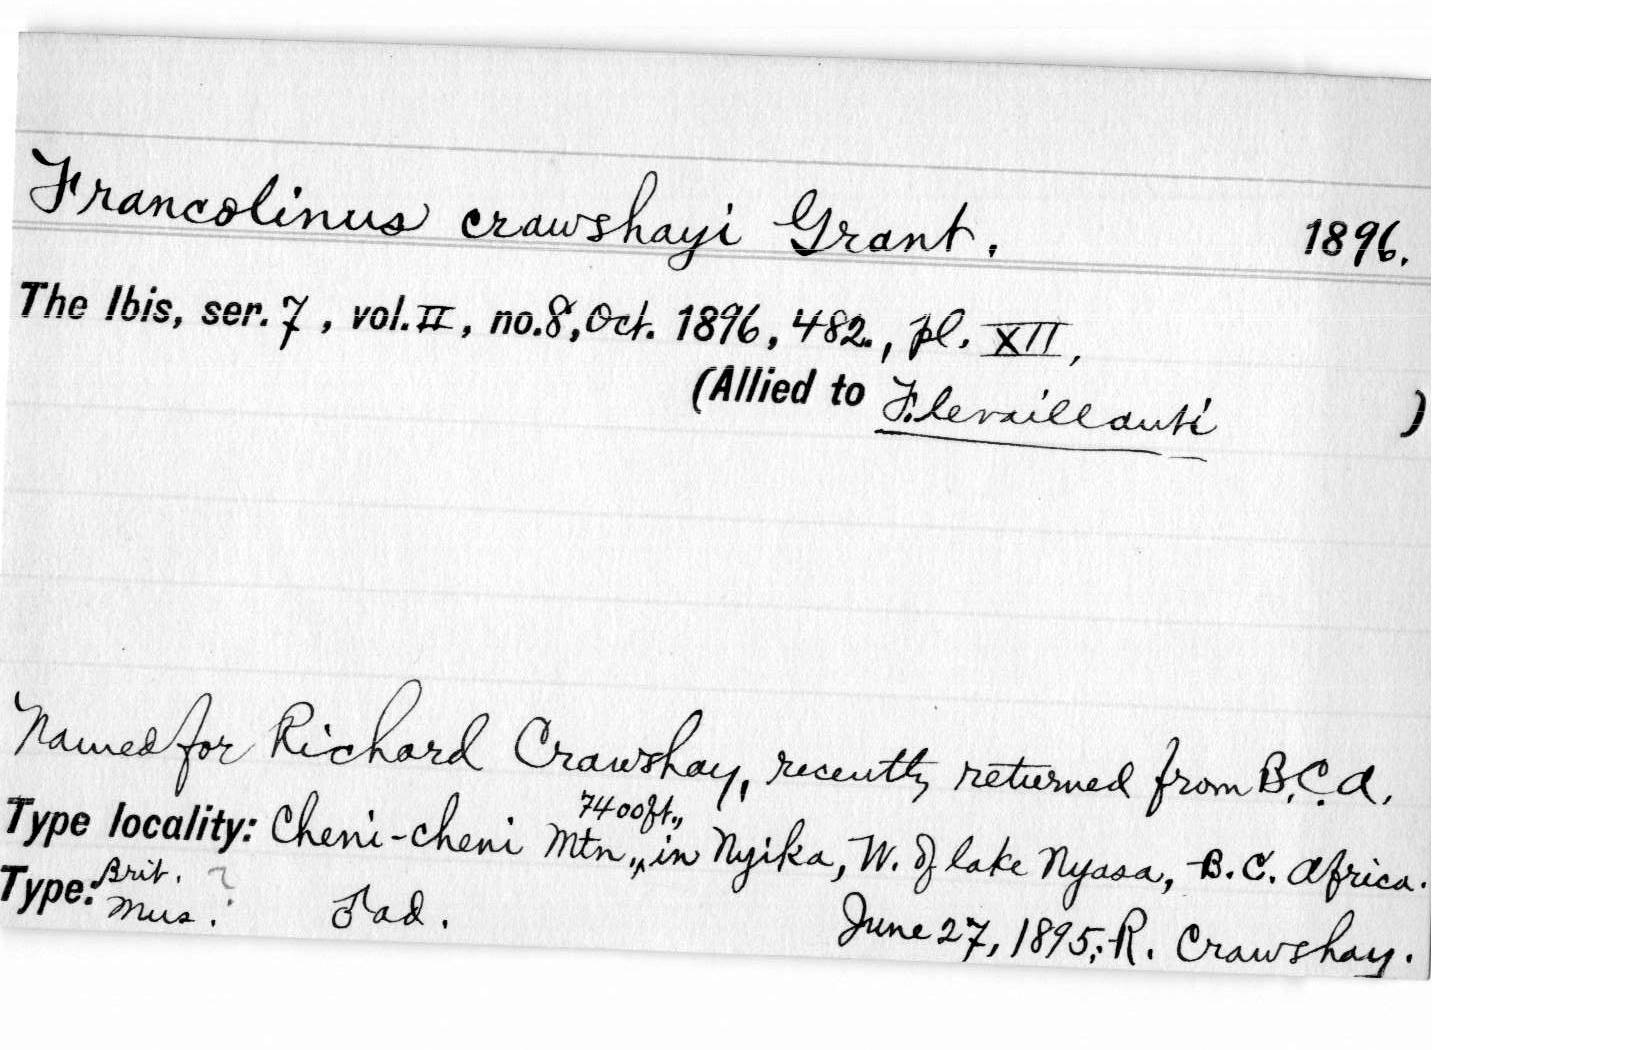 Francolinus crawshayi Grant. 1896.
The Ibis, ser. 7, vol. II, no. 8, Oct. 1896, 482., pl. XII,
(Allied to F. levaillanti )
Named for Richard Crawshay, recently returned from B.C.A.
7400ft.,
Type locality: Cheni-cheni Mtn., in Nyika, W. of lake Nyasa, B.C. Africa.
Brit. ?
Type: Mus. ad. June 27, 1895; R. Crawshay.